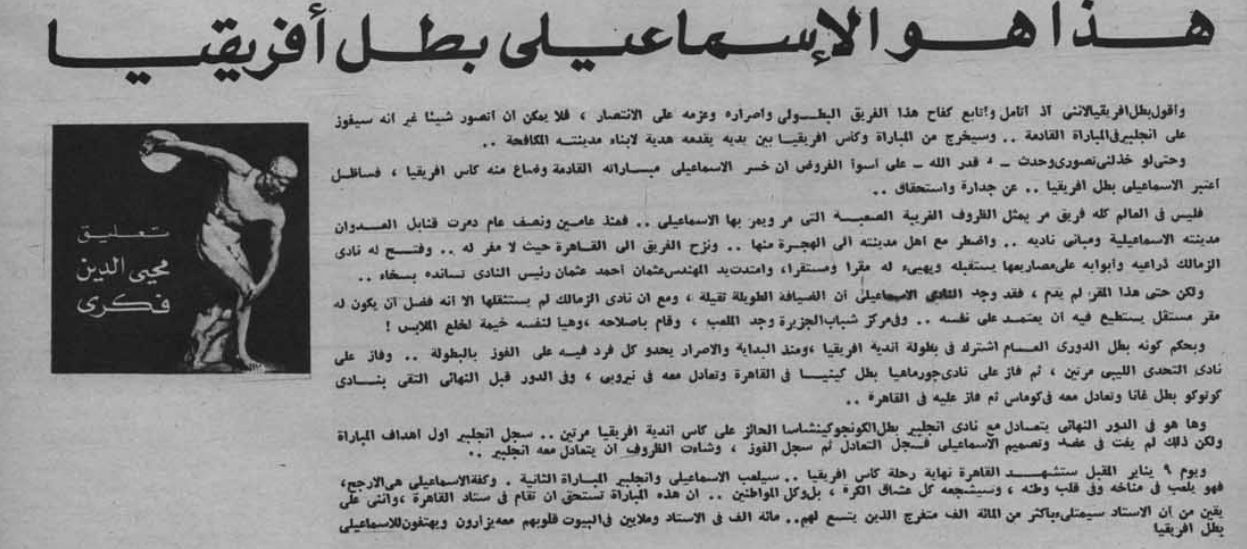 هذا هو الإسماعيلى بطل أفريقيا
وأقول بطل افريقيا لاننى اذ اتامل وأتابع كفاح هذا الفريق البطولى واصراره وعزمه على الانتصار ، فلا يمكن ان اتصور شيئا غير انه سيفوز
على انجلبير فى المباراة القادمة .. وسيخرج من المباراة وكأس افريقيا بين يديه يقدمه هدية لابناء مدينته المكافحة ..
وحتى لو خذلنى تصورى وحدث ـ قدر الله ـ على أسوأ الفروض ان خسر الاسماعيلى مباراته القادمة وضاع منه كاس افريقيا ، فساظل
اعتبر الاسماعيلى بطل افريقيا .. عن جدارة واستحقاق ..
فليس فى العالم كله فريق مر بمثل الظروف الغريبة الصعبة التى مر ويمر بها الاسماعيلى .. فمنذ عامين ونصف عام دمرت قنابل العدوان
مدينته الاسماعيلية ومبانى ناديه .. واضطر مع اهل مدينته الى الهجرة منها .. ونزح الفريق الى القاهرة حيث لا مفر له .. وفتح له نادى
الزمالك ذراعيه وأبوابه على مصاريعها يستقبله ويهيىء له مقرا ومستقرا، وامتدت يد المهندس عثمان احمد عثمان رئيس النادى تسانده بسخاء ..
ولكن حتى هذا المقر لم يدم ، فقد وجد النادى الاسماعيلى أن الضيافة الطويلة ثقيلة ، ومع ان نادى الزمالك لم يستثقلها الا انه فضل ان يكون له
مقر مستقل يستطيع فيه ان يعتمد على نفسه .. وفى مركز شباب الجزيرة وجد الملعب ، وقام باصلاحه ، وهيا لنفسه خيمة لخلع الملابس !
وبحكم كونه بطل الدورى العام اشترك فى بطولة اندية افريقيا ، ومنذ البداية والاصرار يحدو كل فرد فيه على الفوز بالبطولة .. وفاز على
نادى التحدى الليبى مرتين ، ثم فاز على نادى جورماهيا بطل كينيا فى القاهرة وتعادل معه فى نيروبى ، وفى الدور قبل النهائى التقى بنادى
كوتوكو بطل غانا وتعادل معه فى كوماس ثم فاز عليه فى القاهرة ..
وها هو فى الدور النهائى يتعادل مع نادى انجلبير بطل الكونجو كينشاسا الحائز على كاس اندية افريقيا مرتين .. سجل انجلبير اول اهداف المباراة
ولكن ذلك لم يفت فى عضد وتصميم الاسماعيلى فسجل التعادل ثم سجل الفوز ، وشاءت الظروف ان يتعادل معه انجلبير ..
ويوم ٩ يناير المقبل ستشهد القاهرة نهاية رحلة كاس افريقيا .. سيلعب الاسماعيلى وانجلبير المباراة الثانية . وكفة الاسماعيلى هى الارجح،
فهو يلعب فى مناخه وفى قلب وطنه ، وسيشجعه كل عشاق الكرة ، بل وكل المواطنين .. ان هذه المباراة تستحق ان تقام فى ستاد القاهرة ، واننى على
يقين من ان الاستاد سيمتلىء باكثر من المائة الف متفرج الذين يتسع لهم .. مائة الف فى الاستاد وملايين فى البيوت قلوبهم معه يزارون ويهتفون للاسماعيلى
بطل افريقيا
تعليق
محيى الدين
فكرى